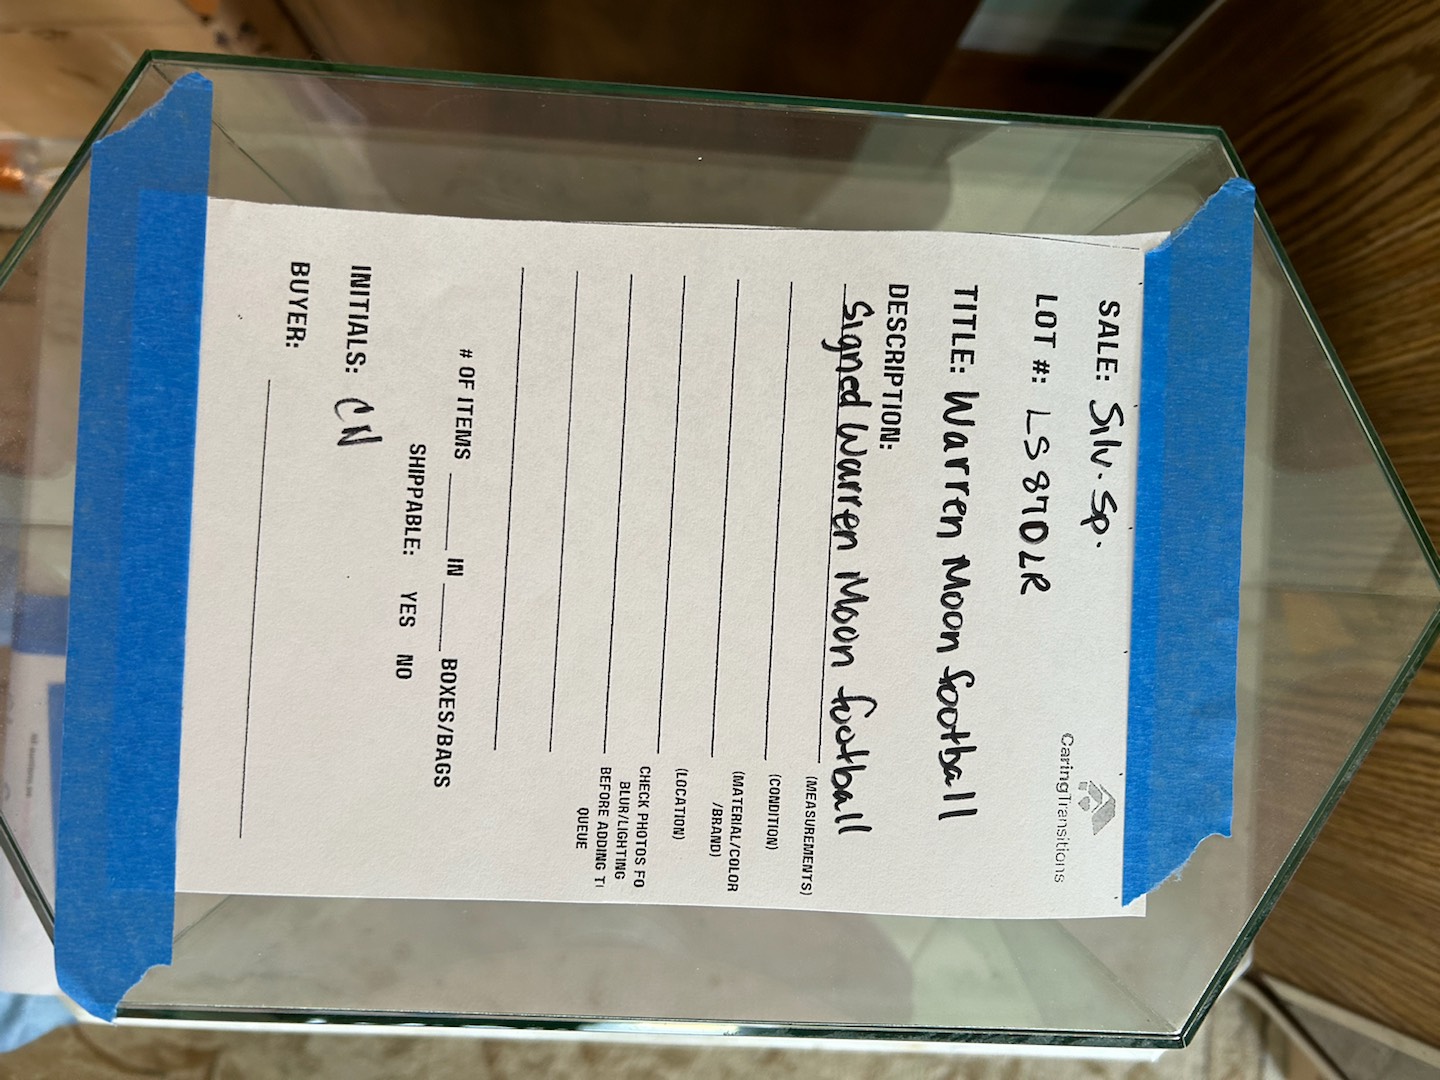 CaringTransitions
SALE: Silv. Sp.
LOT #: LS87DLR
TITLE: Warren Moon football
DESCRIPTION:
Signed Warren Moon football
(MEASUREMENTS)
(CONDITION)
(MATERIAL/COLOR
/BRAND)
(LOCATION)
CHECK PHOTOS FO
BLUR/LIGHTING
BEFORE ADDING T
QUEUE
# OF ITEMS ____ IN ____ BOXES/BAGS
SHIPPABLE: YES NO
INITIALS: CN
BUYER: